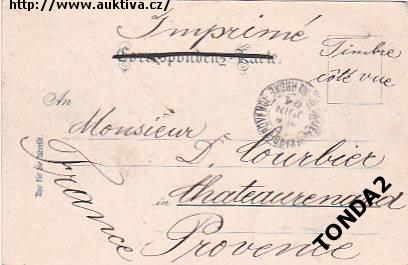 http://www.auktiva.cz/
Imprimé
Correspondenz-Karte.
Timbre
côté vue
An
Monsieur
D. Courbier
in Chateaurenard
Provence
France
Nur für die Adresse.
TONDA2